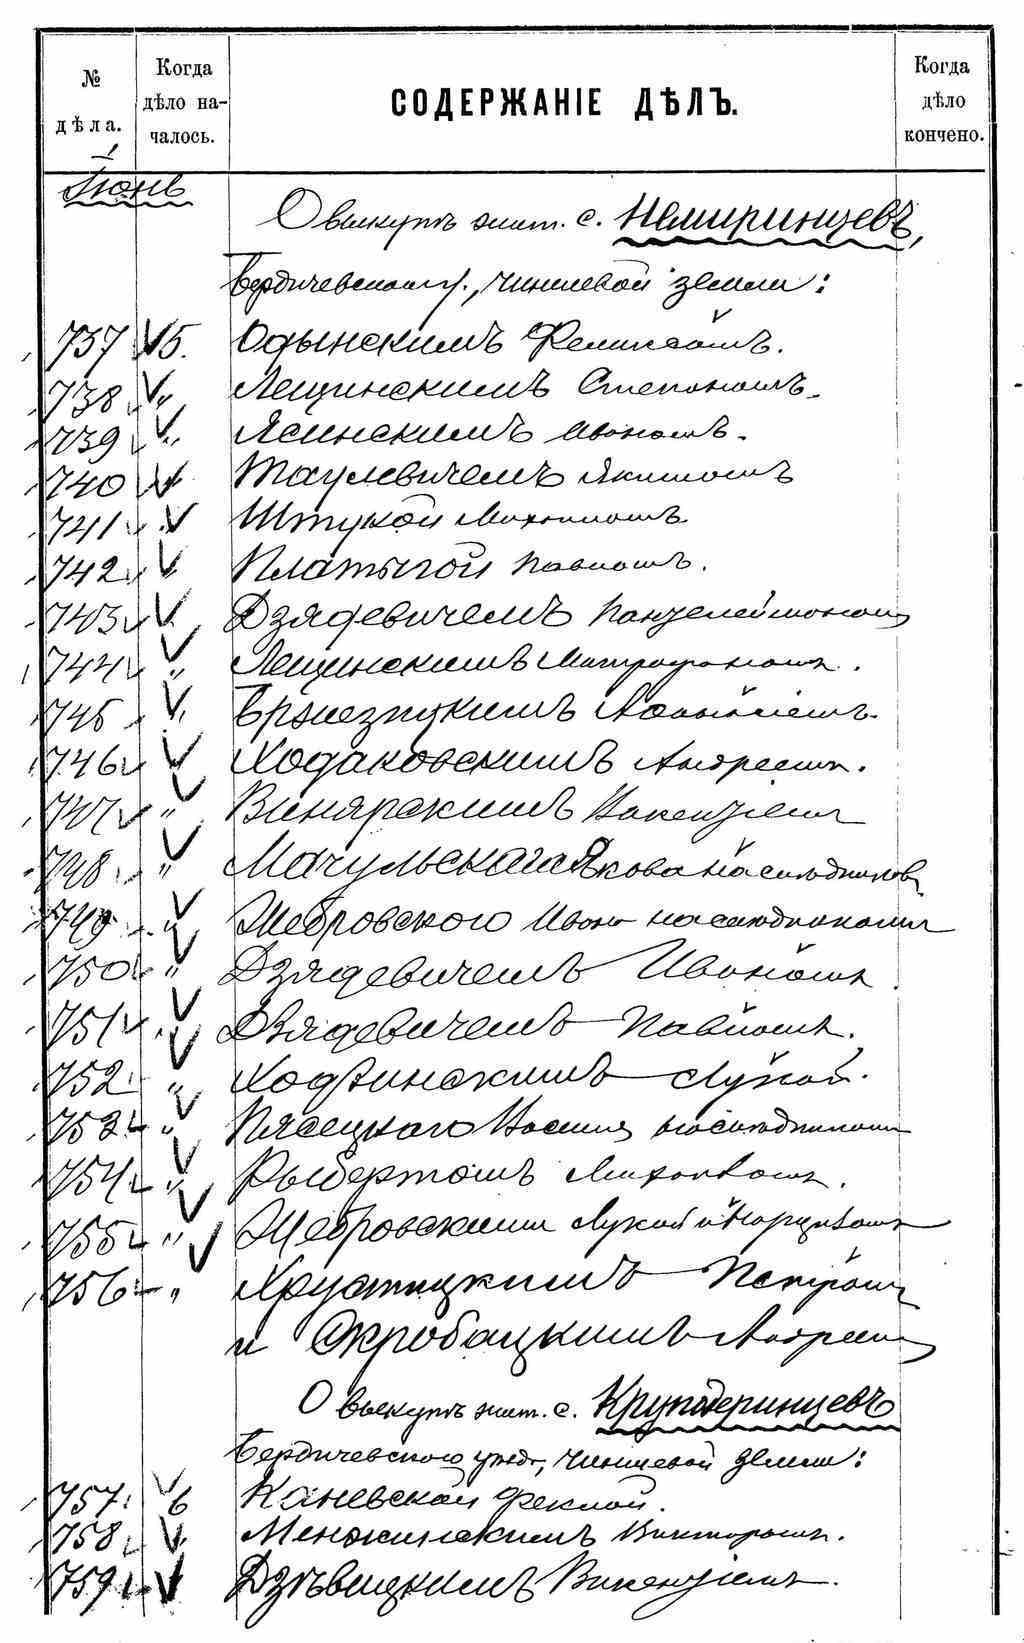 № дѣла.
Когда дѣло на-
чалось.
СОДЕРЖАНІЕ ДѢЛЪ.
Когда дѣло кончено.
Іюнь
О выкупѣ жит. с. Немиринцевъ,
Бердичевскаго у., чиншевой земли:
737 5. Одынскимъ Феликсомъ.
738 " Лещинскимъ Степаномъ.
739 " Ясинскимъ Иваномъ.
740 " Якимомъ
741 " Штукой Михаиломъ
742 " Платыгой Павломъ.
743 " Дзядевичемъ Пантелеймономъ
744 " Лещинскимъ Митрофаномъ.
745 "
746 " Ходаковскимъ Андреемъ.
747 " Винярскимъ Викентіемъ
748 " Мачульскаго Якова наслѣдниковъ
749 " Жебровскаго Ивана наслѣдниками
750 " Дзядевичемъ Иваномъ.
751 " Дзядевичемъ Павломъ.
752 " Ходзинскимъ Лукой.
753 " Пясецкаго наслѣдниками
754 " Рыбертомъ Михаиломъ.
755 " Жебровскими Лукой и
756 " Хрустицкимъ Петромъ
и Скробацкимъ Андреемъ
О выкупѣ жит. с. Круподеринцевъ
Бердичевскаго уѣзда, чиншевой земли:
757 6 Каневской Феклой.
758 " Менжинскимъ Викторомъ.
759 " Дзѣвицкимъ Викентіемъ.